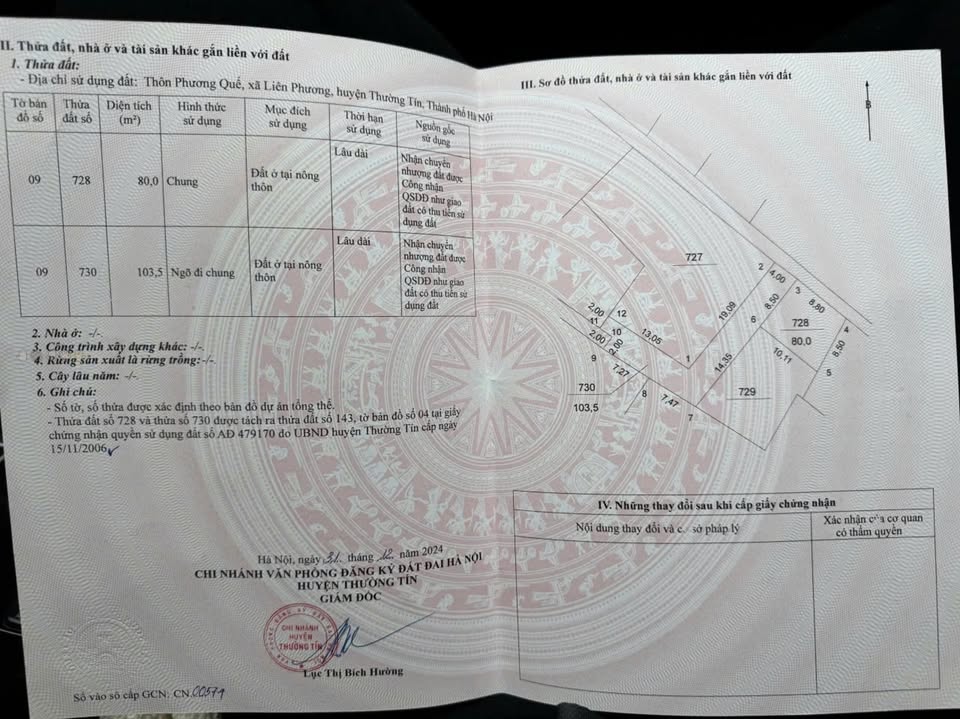 II. Thửa đất, nhà ở và tài sản khác gắn liền với đất
1. Thửa đất:
- Địa chỉ sử dụng đất: Thôn Phương Quế, xã Liên Phương, huyện Thường Tín, Thành phố Hà Nội
Tờ bản đồ số
Thửa đất số
Diện tích (m²)
Hình thức sử dụng
Mục đích sử dụng
Thời hạn sử dụng
Nguồn gốc sử dụng
09
728
80,0
Chung
Đất ở tại nông thôn
Lâu dài
Nhận chuyển nhượng đất được Công nhận QSDĐ như giao đất có thu tiền sử dụng đất
09
730
103,5
Ngõ đi chung
Đất ở tại nông thôn
Lâu dài
Nhận chuyển nhượng đất được Công nhận QSDĐ như giao đất có thu tiền sử dụng đất
2. Nhà ở: -/-.
3. Công trình xây dựng khác: -/-.
4. Rừng sản xuất là rừng trồng:-/-.
5. Cây lâu năm: -/-.
6. Ghi chú:
- Số tờ, số thửa được xác định theo bản đồ dự án tổng thể.
- Thửa đất số 728 và thửa số 730 được tách ra thửa đất số 143, tờ bản đồ số 04 tại giấy
chứng nhận quyền sử dụng đất số AĐ 479170 do UBND huyện Thường Tín cấp ngày
15/11/2006
Hà Nội, ngày 31 tháng 12 năm 2024
CHI NHÁNH VĂN PHÒNG ĐĂNG KÝ ĐẤT ĐAI HÀ NỘI
HUYỆN THƯỜNG TÍN
GIÁM ĐỐC
CHI NHÁNH
HUYỆN
THƯỜNG TÍN
Lục Thị Bích Hường
Số vào sổ cấp GCN: CN.00571
III. Sơ đồ thửa đất, nhà ở và tài sản khác gắn liền với đất
B
727
2
4,00
3
8,80
4
8,50
19,09
6
728
80,0
8,50
5
10,11
2,00
12
11
10
13,05
2,00
2,00
9
7,27
1
14,35
730
103,5
8
7,47
7
729
IV. Những thay đổi sau khi cấp giấy chứng nhận
Nội dung thay đổi và c. sở pháp lý
Xác nhận của cơ quan
có thẩm quyền